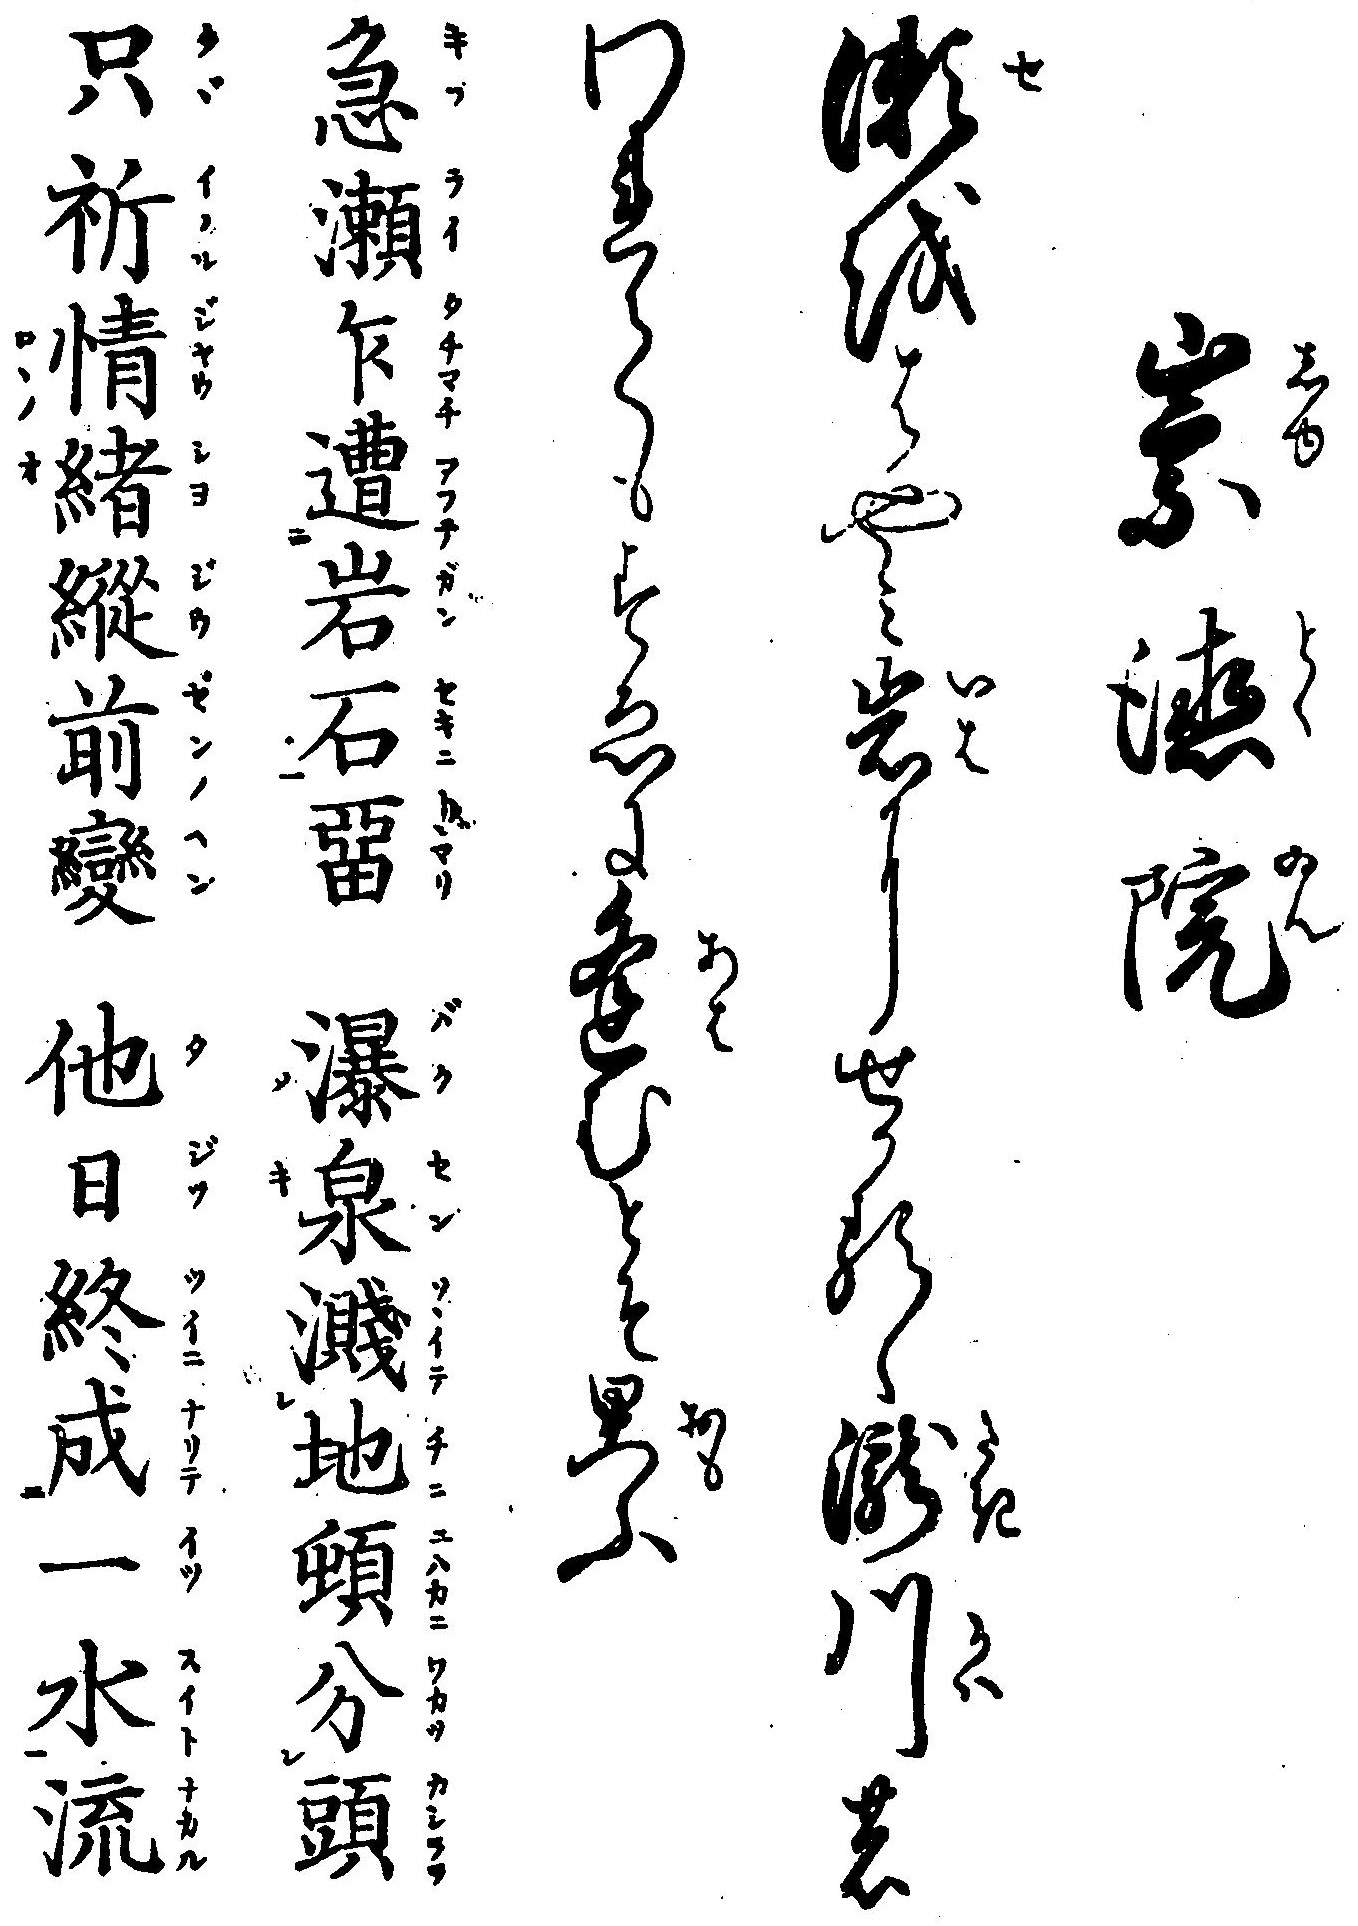 崇德院
瀬越はやみ岩尓せかるゝ瀧川の
われてもすゑに逢むとそ思ふ
急瀬乍遭岩石畱 瀑泉濺地頓分頭
只祈情緒縱前變 他日終成一水流